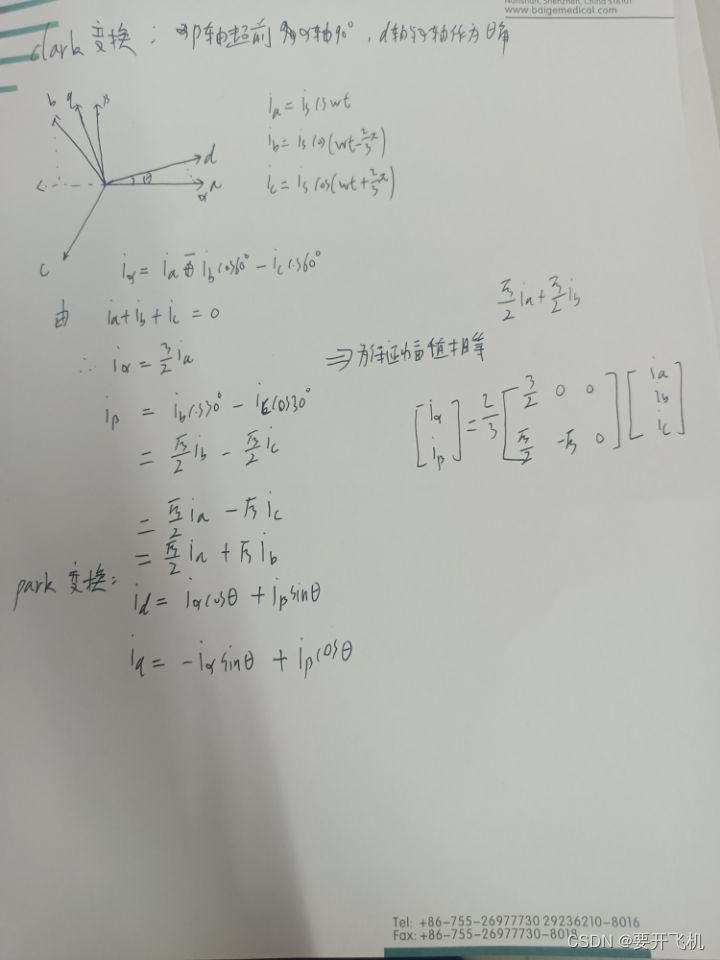 Nanshan, Shenzhen, China 518101
www.baigemedical.com
clark 变换: β轴超前 α轴90°, d轴与α轴作为θ角
b q β
iₐ = iₛ cos wt
i_b = iₛ cos(wt - 2/3 π)
i_c = iₛ cos(wt + 2/3 π)
d
θ
a
α
c
i_α = iₐ i_b cos60° - i_c cos60°
由 iₐ + i_b + i_c = 0
√3/2 iₐ + √3/2 i_b
∴ i_α = 3/2 iₐ
⇒ 为保证幅值相等
i_β = i_b cos30° - i_c cos30°
[i_α i_β] = 2/3 [3/2 0 0 √3/2 -√3 0] [iₐ i_b i_c]
= √3/2 i_b - √3/2 i_c
= √3/2 iₐ - √3 i_c
= √3/2 iₐ + √3 i_b
park 变换:
i_d = i_α cosθ + i_β sinθ
i_q = -i_α sinθ + i_β cosθ
Tel: +86-755-26977730 29236210-8016
Fax: +86-755-26977730-8018
CSDN @要开飞机